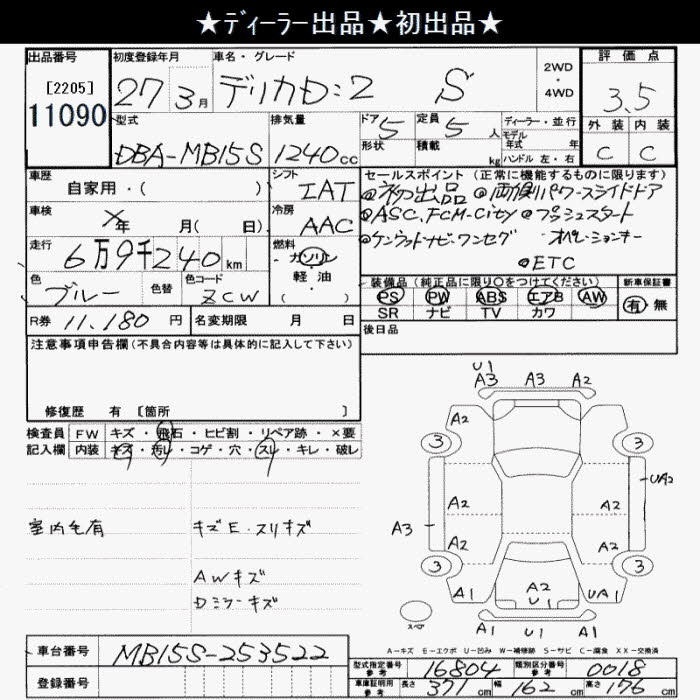 ★ディーラー出品★初出品★
出品番号
[2205]
11090
初度登録年月
27年 3月
車名・グレード
デリカD:2 S
2WD
・
4WD
評価点
3.5
外装 内装
C C
型式
DBA-MB15S
排気量
1240cc
ドア 5
形状
定員 5人
積載 kg
ディーラー・並行
モデル
年式 年
ハンドル 左・右
車歴
自家用・( )
シフト
IAT
セールスポイント(正常に機能するものに限ります)
◎初出品 ◎両側パワースライドドア
◎ASC,FCM-City ◎プッシュスタート
◎ケンウッドナビ・ワンセグ オペレーションキー
◎ETC
車検
X年 月( 日)
冷房
AAC
走行
6万9千240km
燃料
ガソリン
軽・油
( )
色
ブルー
色替
色コード
ZCW
装備品(純正品に限り○をつけてください)
PS PW ABS エアB AW
SR ナビ TV カワ
新車保証書
有・無
R券 11,180円
名変期限 月 日
後日品
注意事項申告欄(不具合内容等は具体的に記入して下さい)
修復歴 有 [箇所 ]
検査員 FW キズ・飛石・ヒビ割・リペア跡・×要
記入欄 内装 キズ・汚レ・コゲ・穴・スレ・キレ・破レ
室内毛有
キズE・スリキズ
AWキズ
Dミラーキズ
U1
A3 A3 A2
A2 A2
3 3
UA2
A2 A2
A3
A2 A2
3 3
A2
A1 U1 UA1
A1 U1 A1
スペア
A-キズ E-エクボ U-凹み W-補修跡 S-サビ C-腐食 XX-交換済
車台番号 MB15S-253522
登録番号
型式指定番号
参考
16804
類別区分番号
参考
0018
車庫証明用
参考
長さ 371cm 幅 162cm 高さ 176cm